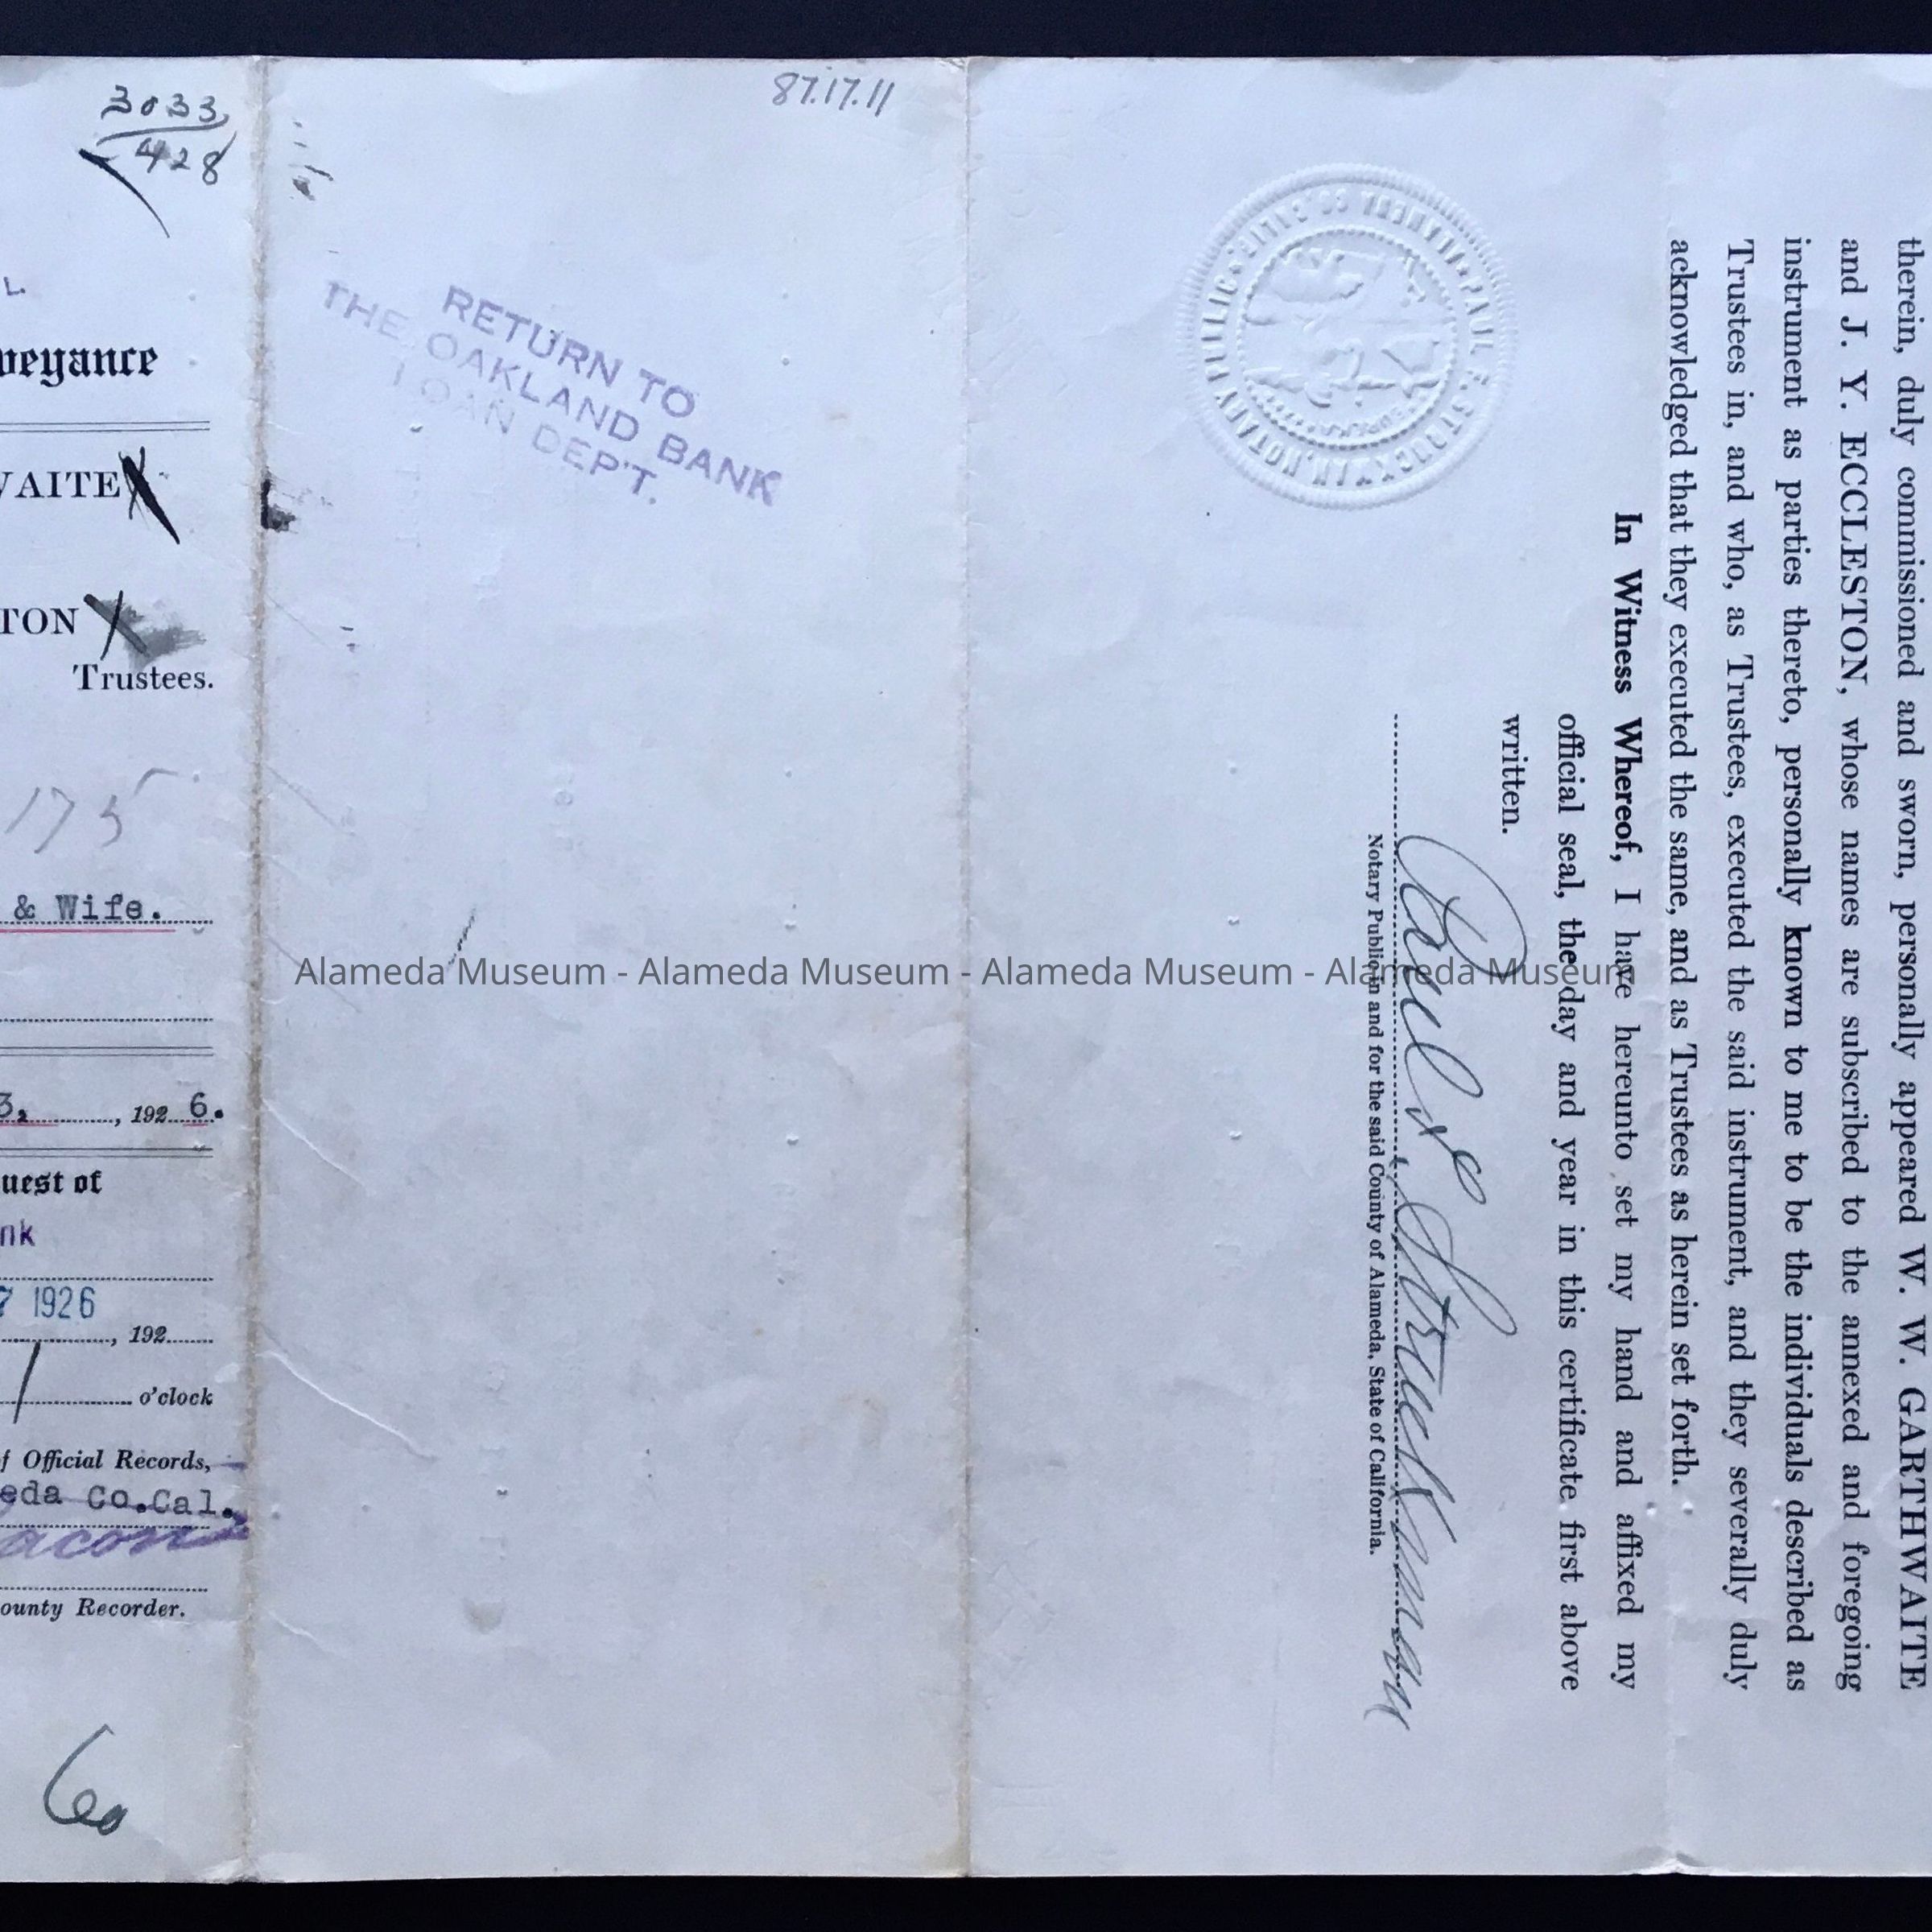 3033
428
L.
veyance
VAITE
TON
Trustees.
175
& Wife.
3, , 192 6.
uest of
nk
7 1926
, 192
o'clock
f Official Records,
eda Co.Cal.
acon
ounty Recorder.
60
87.17.11
RETURN TO
THE OAKLAND BANK
LOAN DEPT.
therein, duly commissioned and sworn, personally appeared W. W. GARTHWAITE
and J. Y. ECCLESTON, whose names are subscribed to the annexed and foregoing
instrument as parties thereto, personally known to me to be the individuals described as
Trustees in, and who, as Trustees, executed the said instrument, and they severally duly
acknowledged that they executed the same, and as Trustees as herein set forth.
In Witness Whereof, I have hereunto set my hand and affixed my
official seal, the day and year in this certificate first above
written.
Paul E. Struckman
Notary Public in and for the said County of Alameda, State of California.
PAUL E. STRUCKMAN, NOTARY PUBLIC
ALAMEDA CO., CALIF.
Alameda Museum - Alameda Museum - Alameda Museum - Alameda Museum